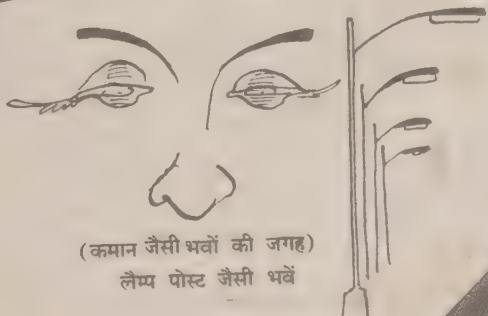 (कमान जैसी भवों की जगह)
लैम्प पोस्ट जैसी भवें